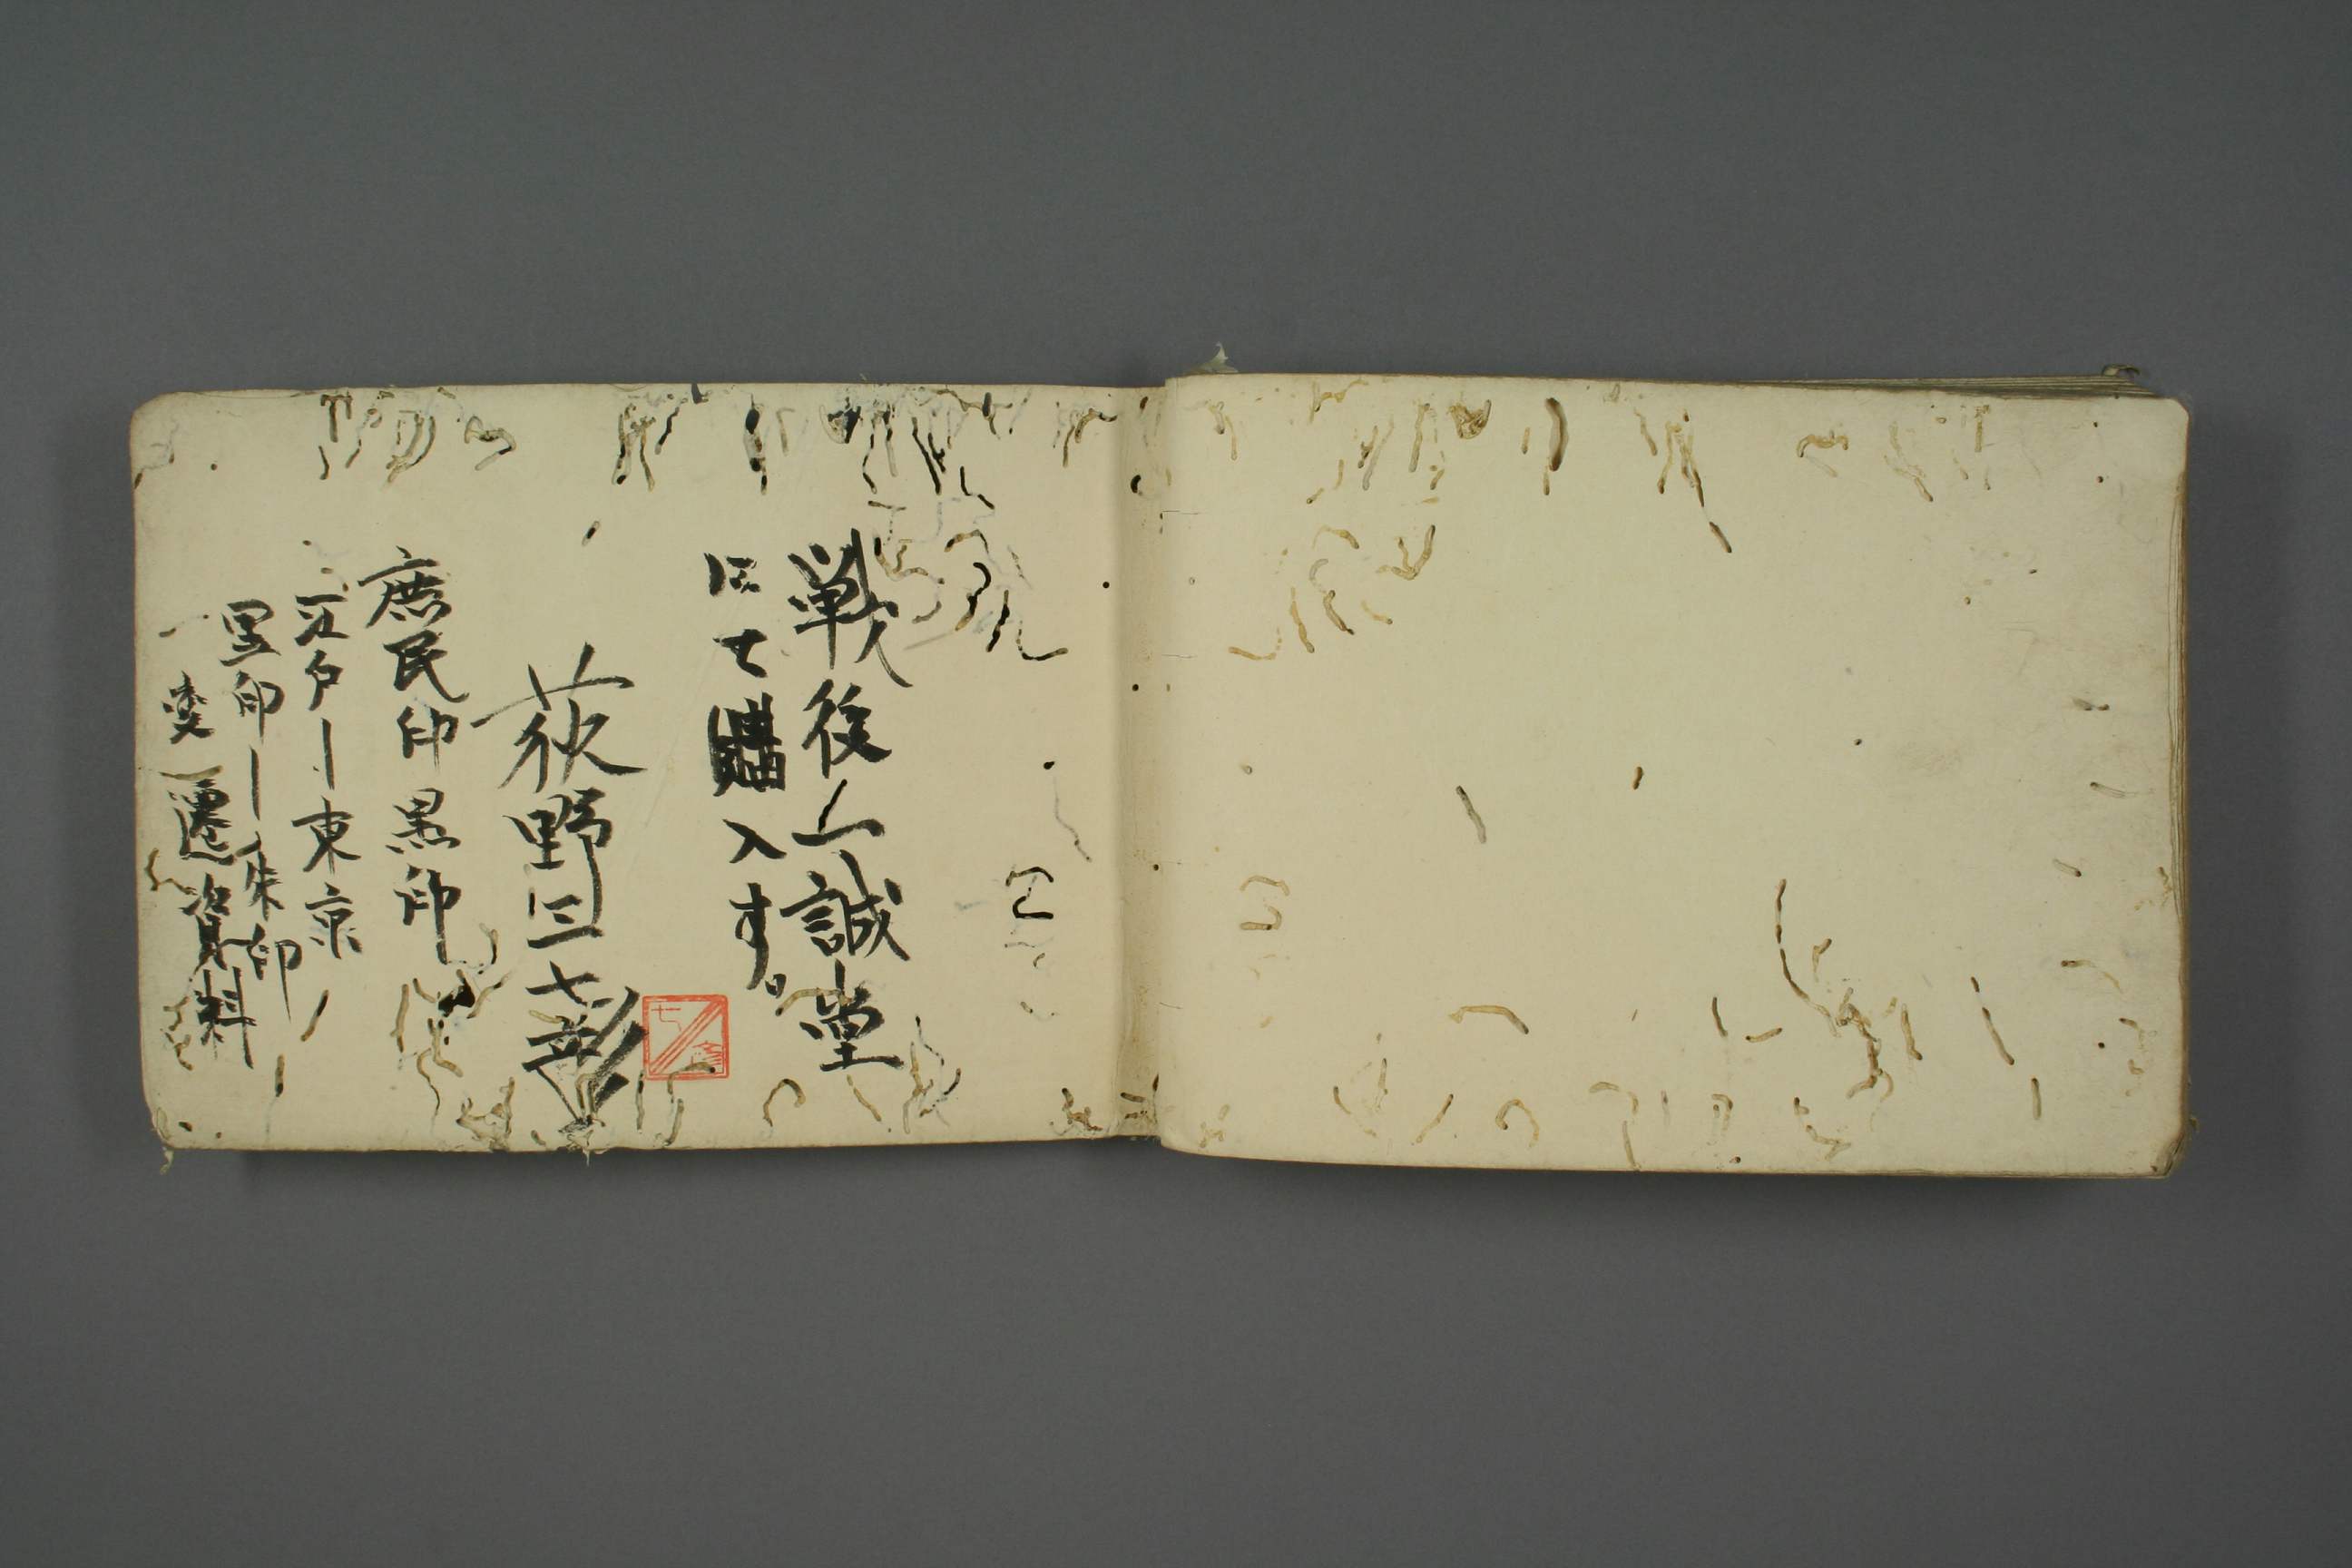 戦後一誠堂
にて購入す。
荻野三七彦
庶民印黒印
江戸ー東京
黒印ー朱印
変遷資料